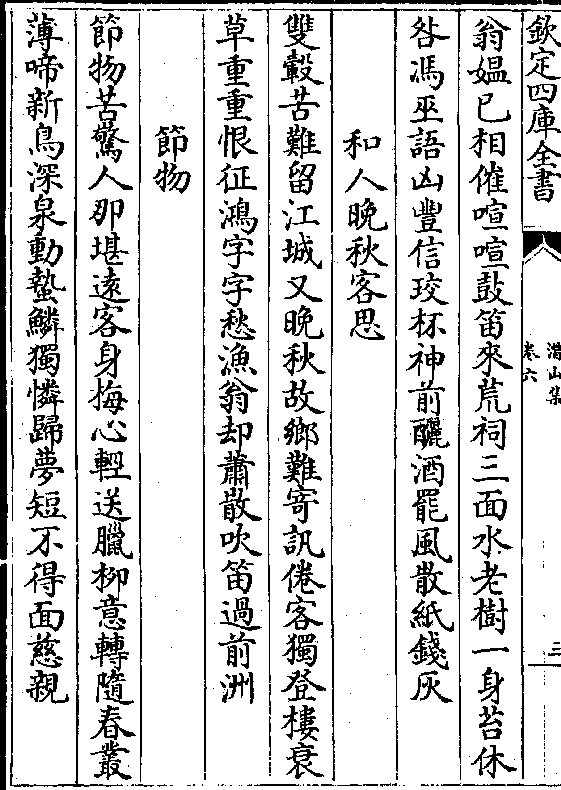 欽定四庫全書
潛山集
卷六
三
翁媪已相催喧喧鼓笛來荒祠三面水老樹一身苔休
咎馮巫語凶豐信珓杯神前釃酒罷風散紙錢灰
和人晚秋客思
雙轂苦難留江城又晚秋故鄉難寄訊倦客獨登樓衰
草重重恨征鴻字字愁漁翁却蕭散吹笛過前洲
節物
節物苦驚人那堪遠客身梅心輕送臘柳意轉隨春叢
薄啼新鳥深泉動蟄鱗獨憐歸夢短不得面慈親